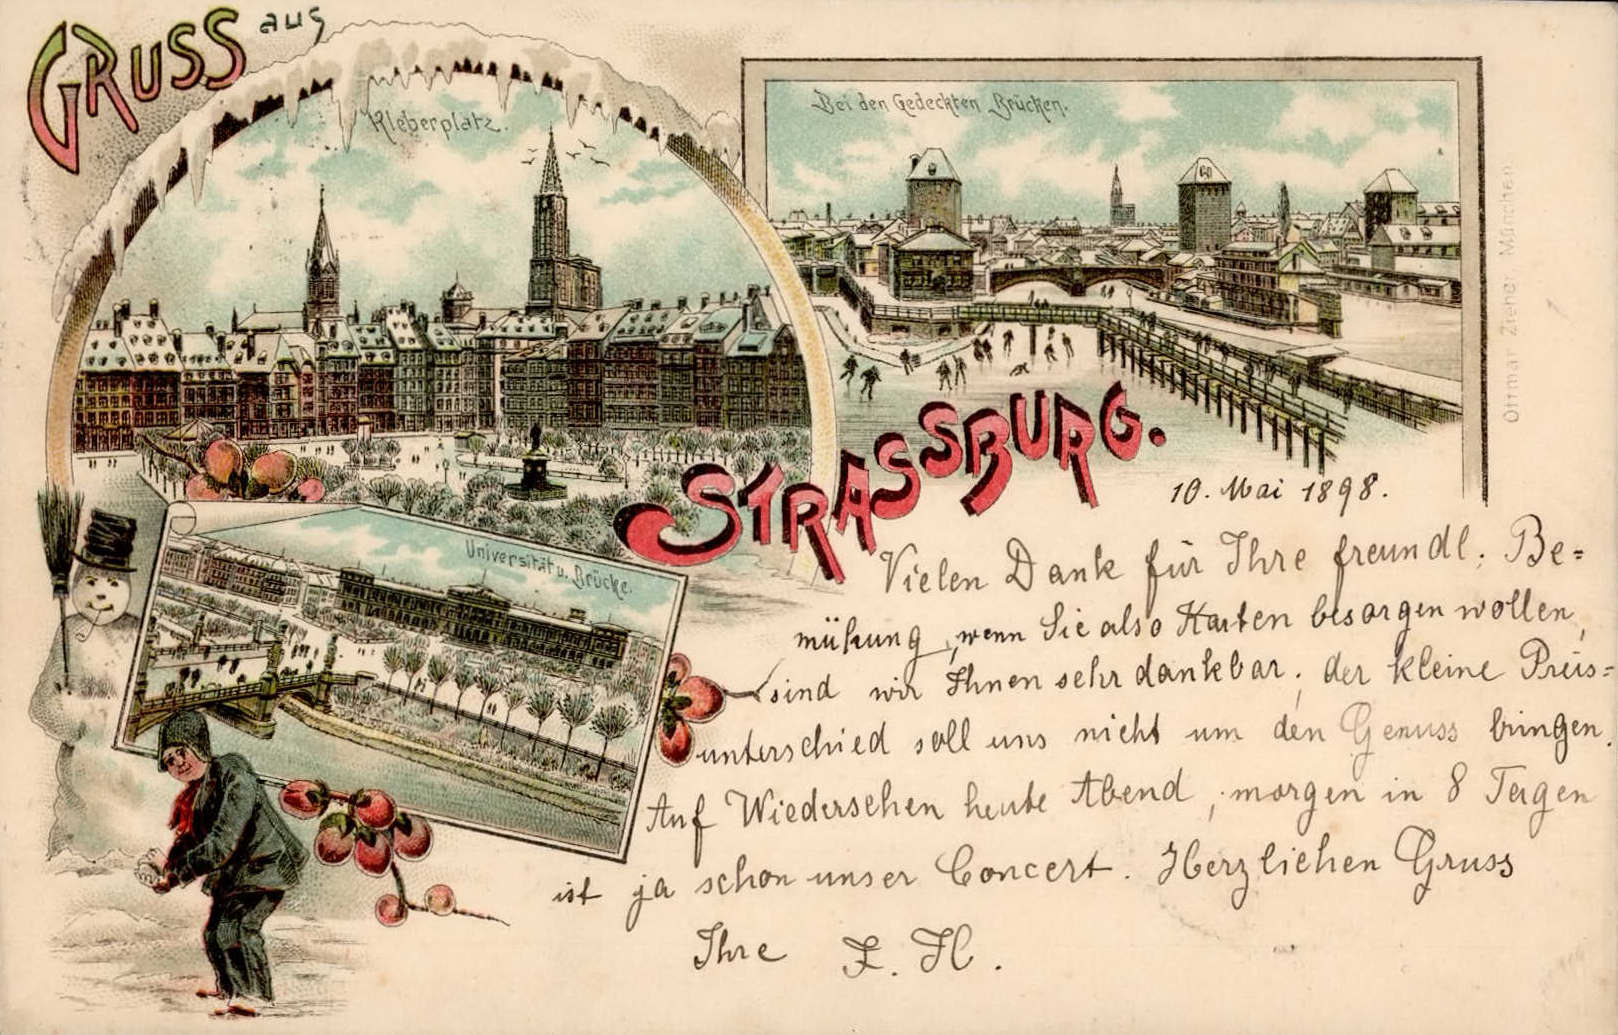 GRUSS aus
Kleberplatz.
Bei den Gedeckten Brücken.
Ottmar Zieher, München
STRASSBURG.
Universität u. Brücke.
10. Mai 1898.
Vielen Dank für Ihre freundl. Be=
mühung, wenn Sie also Karten besorgen wollen,
sind wir Ihnen sehr dankbar, der kleine Preis=
unterschied soll uns nicht um den Genuss bringen.
Auf Wiedersehen heute Abend, morgen in 8 Tagen
ist ja schon unser Concert. Herzlichen Gruss
Ihre L. H.